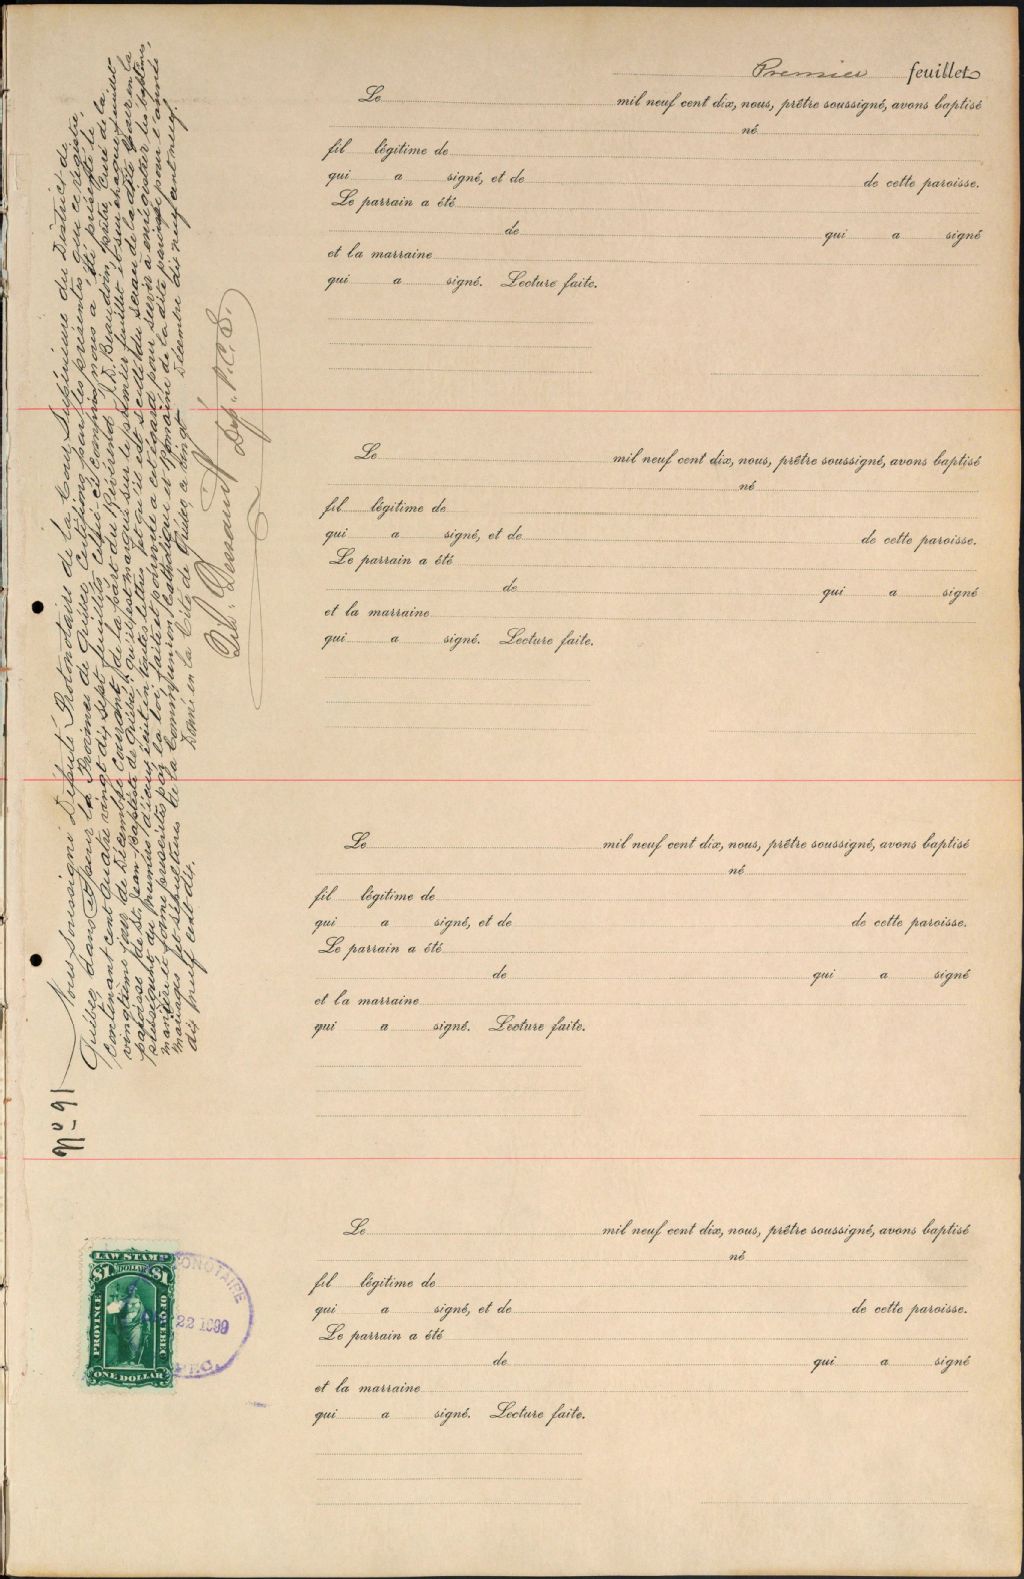 Premier feuillet
Le mil neuf cent dix, nous, prêtre soussigné, avons baptisé
né
fil légitime de
qui a signé, et de de cette paroisse.
Le parrain a été
de qui a signé
et la marraine
qui a signé. Lecture faite.
Le mil neuf cent dix, nous, prêtre soussigné, avons baptisé
né
fil légitime de
qui a signé, et de de cette paroisse.
Le parrain a été
de qui a signé
et la marraine
qui a signé. Lecture faite.
Le mil neuf cent dix, nous, prêtre soussigné, avons baptisé
né
fil légitime de
qui a signé, et de de cette paroisse.
Le parrain a été
de qui a signé
et la marraine
qui a signé. Lecture faite.
Le mil neuf cent dix, nous, prêtre soussigné, avons baptisé
né
fil légitime de
qui a signé, et de de cette paroisse.
Le parrain a été
de qui a signé
et la marraine
qui a signé. Lecture faite.
No 91
Nous soussigné Député Protonotaire de la Cour Supérieure du District de
Québec, dans et pour la Province de Québec, Certifions par les présentes que ce registre,
contenant cent quatre vingt dix sept feuillets, celui-ci compris, nous a été présenté le
vingtième jour de Décembre courant, de la part du Révérend J. D. Beaudoin, prêtre, Curé de la
paroisse de St. Jean-Baptiste de Québec, qu'il est marqué sur le premier feuillet et sur chaque feuillet
subséquent du numéro d'iceux écrit en toutes lettres et qu'il est scellé du sceau de la dite Cour en la
manière et forme prescrites par la loi, faite et pourvue à cet égard pour servir à enrégistrer les baptêmes,
mariages et sépultures de la Communion Catholique et Romaine de la dite paroisse pour l'année
dix neuf cent dix.
Donné en la Cité de Québec, ce vingt Décembre dix neuf cent neuf.
Dép. P. C. S.
LAW STAMP
$1 DOLLAR $1
PROVINCE OF QUEBEC
ONE DOLLAR
22 1909